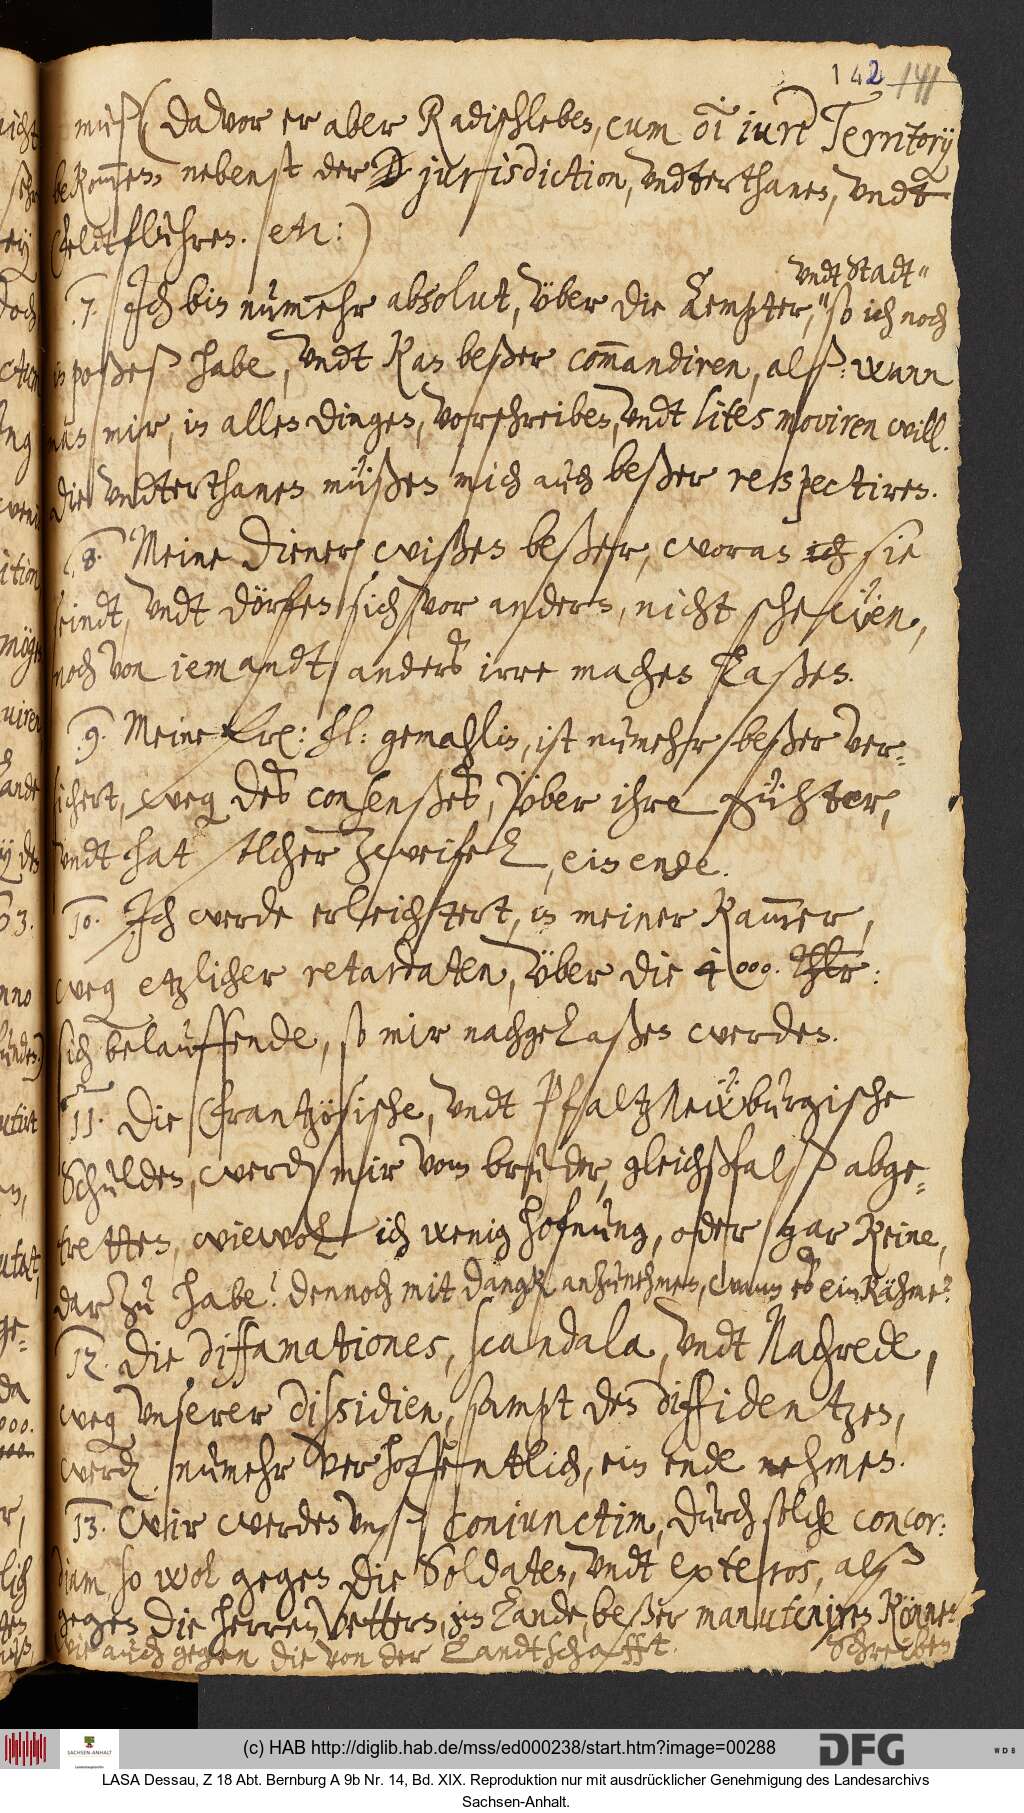 142 141
muß (davor er aber Radischleben, cum oi iure Territorij
bekommen, nebenst der jurisdiction, undterthanen, undt
feldtflühren. etc:)
undt Stadt"
7. Ich bin nümehr absolut, über die Aempter," so ich noch
in poßeß habe, undt kan beßer commandiren, alß: wann
man mir, in allen dingen, vorschreiben, undt lites moviren will.
Die undterthanen müßen mich auch beßer respectiren.
8. Meine diener wißen beßer, woran ich sie
seindt, undt dörfen sich vor andern, nicht schewen,
noch von iemandt anders irre machen laßen.
9. Meine fr: hl: gemahlin, ist nümehr beßer ver-
sichert, weg des consenßes, über ihre güchter,
undt hat solcher zweifel, ein ende.
10. Ich werde erleichtert, in meiner kammer,
weg etzlicher retardaten, über die 4000. Thlr:
sich belauffende, so mir nachgelaßen werden.
11. Die frantzösische, undt Pfaltzneüburgische
Schulden, werden mir vom bruder, gleichßfalß abge-
tretten, wiewol ich wenig hofnung, oder gar keine,
darzu habe. dennoch mit danck anzunehmen, wann es ein kähme.
12. Die diffamationes, scandala, undt Nachrede,
weg unserer dissidien, sampt den diffidentzen,
werden nümehr verhoffentlich, ein ende nehmen.
13. Wir werden unß conjunctim, durch solche concor-
diam, so wol gegen die Soldaten, undt exteros, alß
gegen die herren Vettern, im Lande, beßer manuteniren können
wie auch gegen die von der Landtschafft. Schreiben
(c) HAB http://diglib.hab.de/mss/ed000238/start.htm?image=00288
SACHSEN-ANHALT
DFG
WDB
LASA Dessau, Z 18 Abt. Bernburg A 9b Nr. 14, Bd. XIX. Reproduktion nur mit ausdrücklicher Genehmigung des Landesarchivs
Sachsen-Anhalt.